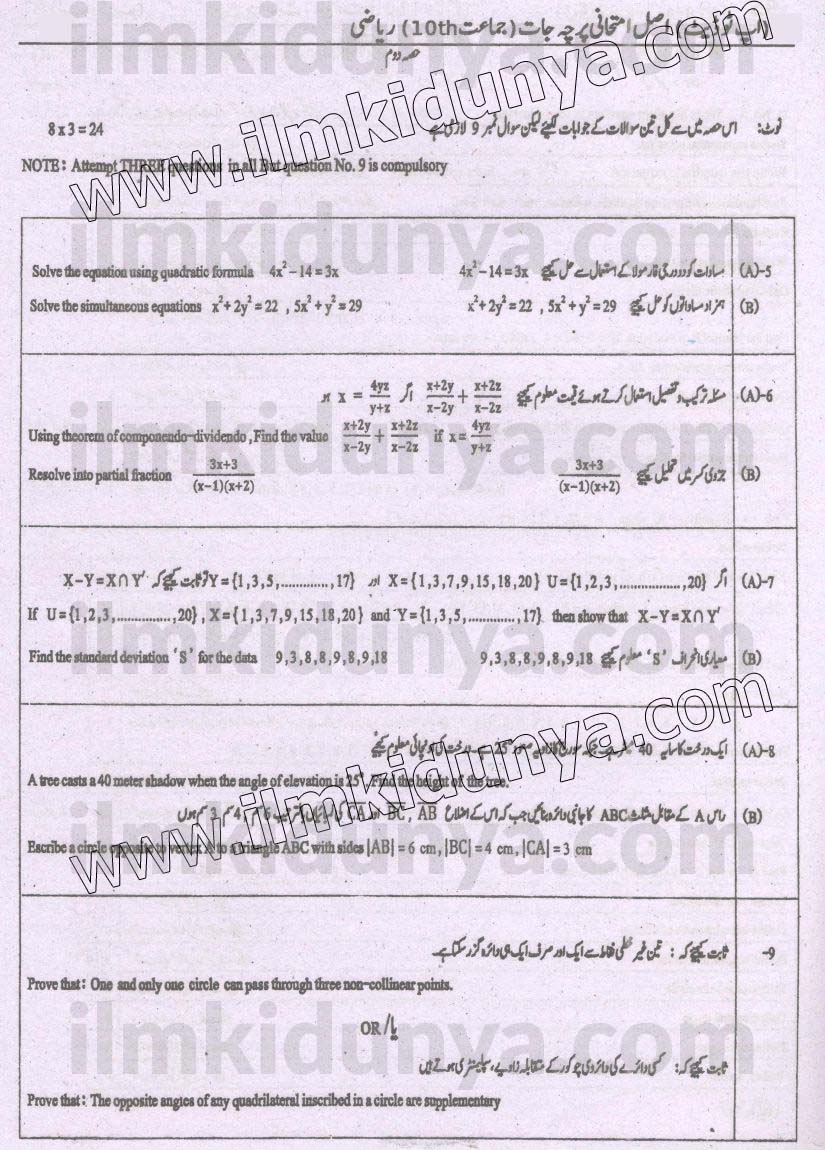 (اپ ٹو ڈیٹ) اصل امتحانی پرچہ جات (جماعت 10th) ریاضی
حصہ دوم
نوٹ: اس حصہ میں سے کل تین سوالات کے جوابات لکھئے لیکن سوال نمبر 9 لازمی ہے 8 x 3 = 24
NOTE: Attempt THREE questions in all But question No. 9 is compulsory
www.ilmkidunya.com
(A)-5 مساوات کو دو درجی فارمولا کے استعمال سے حل کیجیے 4x² − 14 = 3x
Solve the equation using quadratic formula 4x² − 14 = 3x
(B) ہمزاد مساواتوں کو حل کیجیے x² + 2y² = 22 , 5x² + y² = 29
Solve the simultaneous equations x² + 2y² = 22 , 5x² + y² = 29
(A)-6 مسئلہ ترکیب و تفصیل استعمال کرتے ہوئے قیمت معلوم کیجیے (x+2y)/(x−2y) + (x+2z)/(x−2z) اگر x = 4yz/(y+z) ہو
Using theorem of componendo-dividendo , Find the value (x+2y)/(x−2y) + (x+2z)/(x−2z) if x = 4yz/(y+z)
(B) جزوی کسر میں تحلیل کیجیے (3x+3)/((x−1)(x+2))
Resolve into partial fraction (3x+3)/((x−1)(x+2))
(A)-7 اگر U = {1,2,3,................,20} X = {1,3,7,9,15,18,20} اور Y = {1,3,5,.............,17} تو ثابت کیجیے کہ X−Y = X∩Y′
If U = {1,2,3,..............,20} , X = {1,3,7,9,15,18,20} and Y = {1,3,5,.............,17} then show that X−Y = X∩Y′
(B) معیاری انحراف ‘S’ معلوم کیجیے 9,3,8,8,9,8,9,18
Find the standard deviation ‘S’ for the data 9,3,8,8,9,8,9,18
(A)-8 ایک درخت کا سایہ 40 25° درخت کی اونچائی معلوم کیجیے
A tree casts a 40 meter shadow when the angle of elevation is 25°. Find the height of the tree.
(B) راس A کے مقابل مثلث ABC کا جانبی دائرہ بنائیں جب کہ اس کے اضلاع BC , AB اور CA کی لمبائیاں بالترتیب 6 سم , 4 سم , 3 سم ہوں
Escribe a circle opposite to vertex A to a triangle ABC with sides |AB| = 6 cm , |BC| = 4 cm , |CA| = 3 cm
www.ilmkidunya.com
-9 ثابت کیجیے کہ: تین غیر خطی نقاط سے ایک اور صرف ایک ہی دائرہ گزر سکتا ہے۔
Prove that: One and only one circle can pass through three non-collinear points.
OR / یا
ثابت کیجیے کہ: کسی دائرے کی دائروی چوکور کے متقابلہ زاویے، سپلیمنٹری ہوتے ہیں
Prove that: The opposite angles of any quadrilateral inscribed in a circle are supplementary